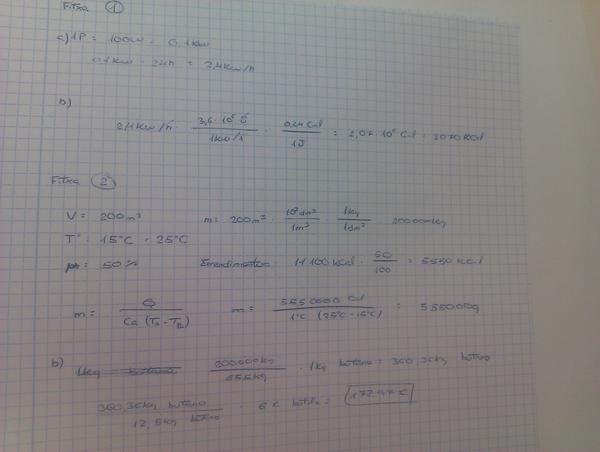 Fitxa 1
a) 1P = 100W = 0,1Kw
0,1Kw · 24h = 2,4Kw/h
b)
2,4Kw/h · 3,6·10⁶ J / 1Kw/h · 0,24 Cal / 1J = 2,07·10⁶ Cal = 2070 KCal
Fitxa 2
V = 200m³ m = 200m³ · 10³dm³ / 1m³ · 1Kg / 1dm³ = 200000Kg
Tª = 15°C - 25°C
50% 11100 KCal · 50 / 100 = 5550 KCal
m = Q / Ca (Ta - Tb) m = 5550000 Cal / 1°C (25°C - 15°C) = 555000g
b) 1Kg butano 200000Kg / 555Kg · 1Kg butano = 360,36Kg butano
360,36Kg butano / 12,5Kg butano · 6€ botella = 172,97€